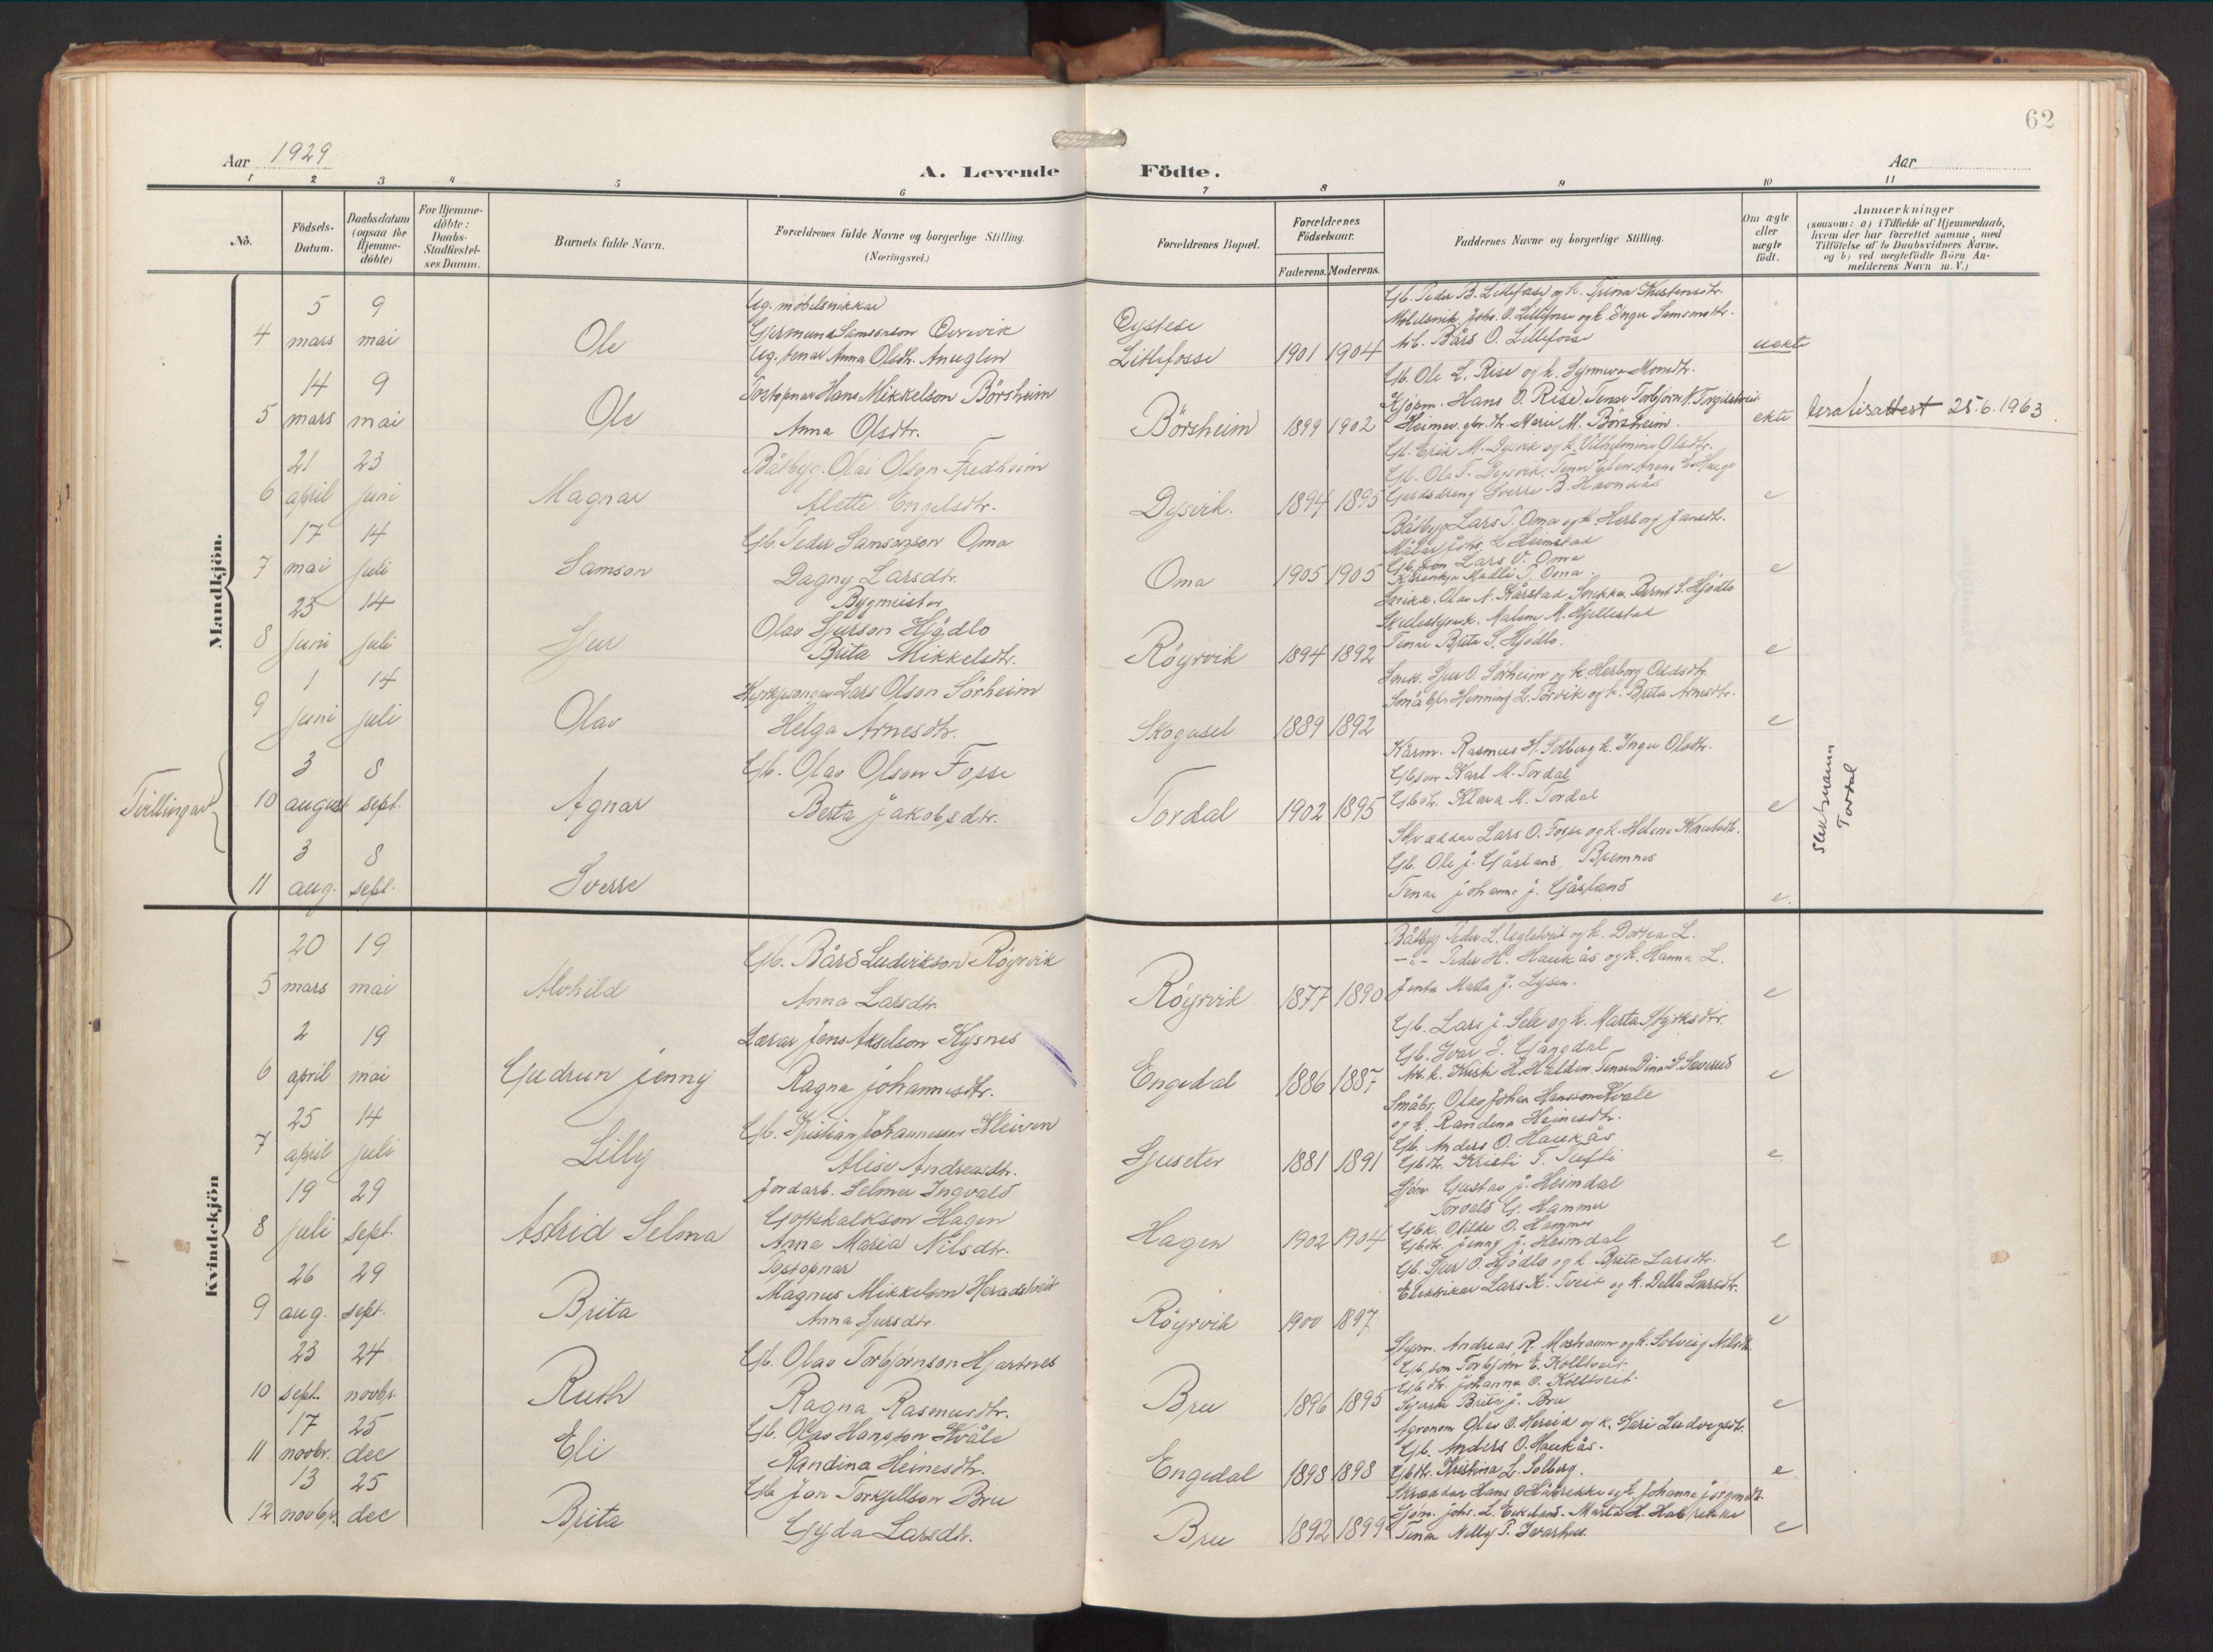 62
Aar 1929
A. Levende Födte.
Aar
1 2 3 4 5 6 7 8 9 10 11
No.
Födsels-Datum.
Daabsdatum (ogsaa for Hjemme-döbte)
For Hjemme-döbte: Daabs-Stadfæstel-ses Datum.
Barnets fulde Navn.
Forældrenes fulde Navne og borgerlige Stilling. (Næringsvei.)
Forældrenes Bopæl.
Forældrenes Födselsaar.
Faderens. Moderens.
Faddernes Navne og borgerlige Stilling.
Om ægte eller uægte födt.
Anmærkninger
(saasom: a) i Tilfælde af Hjemmedaab,
hvem der har forrettet samme, med
Tilföielse af to Daabsvidners Navne,
og b) ved uægtefödte Börn An-
melderens Navn m. V.)
Mandkjön.
4 5 mars 9 mai
Ole
Ug. möbelsnikkar
Samsonson
Ug. Anna Olsdtr.
Øystese
Litlefosse
1901 1904
Møbelsnik. Johs. O. Lillefosse og k. Inger Samsonsdtr.
Bård O. Lillefosse
uekte
5 14 mars 9 mai
Ole
Hans Mikkelson Börsheim
Anna Olsdtr.
Börsheim
1899 1902
Gb. Ole L. Rise og k.
Kjöpm. Hans O. Rise
M. Börsheim
ekte
25.6.1963
6 21 april 23 juni
Magnar
Båtbyg. Olai Olson Fredheim
Alette Engelsdtr.
Dysvik.
1894 1895
Gb. Erik M. Dysvik og k. Vilhelmine Olsdtr.
Gb. Ola T. Dysvik.
Sverre B. Havnås
e
7 17 mai 14 juli
Samson
Gb. Peder Samsonson Oma
Dagny Larsdtr.
Oma
1905 1905
Båtbyg Lars P. Oma og k. Herborg Jansdtr.
Målar Johs. L. Heimstad
Gb. son Lars V. Oma
Madli P. Oma.
e
8 23 juni 14 juli
Sjur
Bygmeister
Olav Sjurson Hjødlo
Brita Mikkelsdtr.
Röyrvik
1894 1892
Snikk. Olav N. Kårstad, Snikkar Bernt S. Hjødlo
Malene M. Gjellestad
Tenar Brita S. Hjødlo.
e
9 1 juni 14 juli
Olav
Kyrkjesongar Lars Olson Sörheim
Helga Arnesdtr.
Skogasel
1889 1892
Snik. Sjur O. Sörheim og k. Herborg Oddsdtr.
Små Gb. Henning L. Torvik og k. Brita Arnesdtr.
e
Tvillingar
10 3 august 8 sept.
Agnar
Gb. Olav Olson Fosse
Berta Jakobsdtr.
Tordal
1902 1895
Rasmus H. Solberg k. Inger Olsdtr.
Gbson Karl M. Tordal
Gbdtr. Klara M. Tordal
e
Slektsnamn
Tordal
11 3 aug. 8 sept.
Sverre
Skræddar Lars O. Fosse og k. Helena Knutsdtr.
Gb. Ole J. Gåsland Bremnes
Tenar Johanna J. Gåsland
e.
Kvindekjön
5 20 mars 19 mai
Alvhild
Gb. Bård Ludvikson Röyrvik
Anna Larsdtr.
Röyrvik
1877 1890
Båtbyg Peder L. og k. Dortea L.
-"- Peder H. Haukås og k. Hanna L.
Jenta Marta J. Lysen.
e
6 2 april 19 mai
Gudrun Jenny
Lærar Jens Akselson Kysnes
Ragna Johannesdtr.
Engedal
1886 1887
Gb. Lars J. Sele og k. Marta Styrksdtr.
Gb. Ivar J. Gjangdal
e
7 25 april 14 juli
Lilly
Gb. Kristian Johannesson Kleiven
Alise Andreasdtr.
Sjuseter
1881 1891
Småbr. Olav Johan Hansson Kvale
og k. Randena Heinesdtr.
Gb. Anders O. Haukås
Gbdtr. Kristi T. Tufte
e.
8 19 juli 29 sept.
Astrid Selma
Jordarb. Selmer Ingvald
Gottskalkson Hagen
Anna Maria Nilsdtr.
Hagen
1902 1904
Sjöm Gustav J. Heimdal
Torvald G. Hammer
Gbk. Otilde O. Hammer
Gbdtr. Jenny J. Heimdal
e
9 26 aug. 29 sept.
Brita
Postopnar
Magnus Mikkelson Heradstveit
Anna Sjursdtr.
Röyrvik
1900 1897
Gb. Sjur O. Hjødlo og k. Brita Larsdtr.
Lars K. Tveit og k. Della Larsdtr.
e
10 23 sept. 24 novbr.
Ruth
Gb. Olav Torbjörnson Hjartnes
Ragna Rasmusdtr.
Bru
1896 1895
Styrm. Andreas R. Moshamn og k. Solveig Nilsdtr.
Gb. son Torbjörn E. Kolltveit.
Gbdtr. Johanna O. Kolltveit.
Brita J. Bru
e
11 17 novbr. 25 dec
Eli
Gb. Olav Hansson Kvåle
Randina Heinesdtr.
Engedal
1898 1898
Agronom Olav O. Hereid og k. Kari Ludvigsdtr.
Gb. Anders O. Haukås.
Gbdtr. Kristina L. Solberg.
e
12 13 novbr. 25 dec
Brita
Gb Jon Torkjellson Bru
Gyda Larsdtr.
Bru
1892 1899
Skræddar Hans O Håbrekke og k. Johanna Jörgensdtr.
Sjöm. Johs. L. Eikeland. Marta H. Håbrekke
Tenar Nelly T. Ivarhus.
e